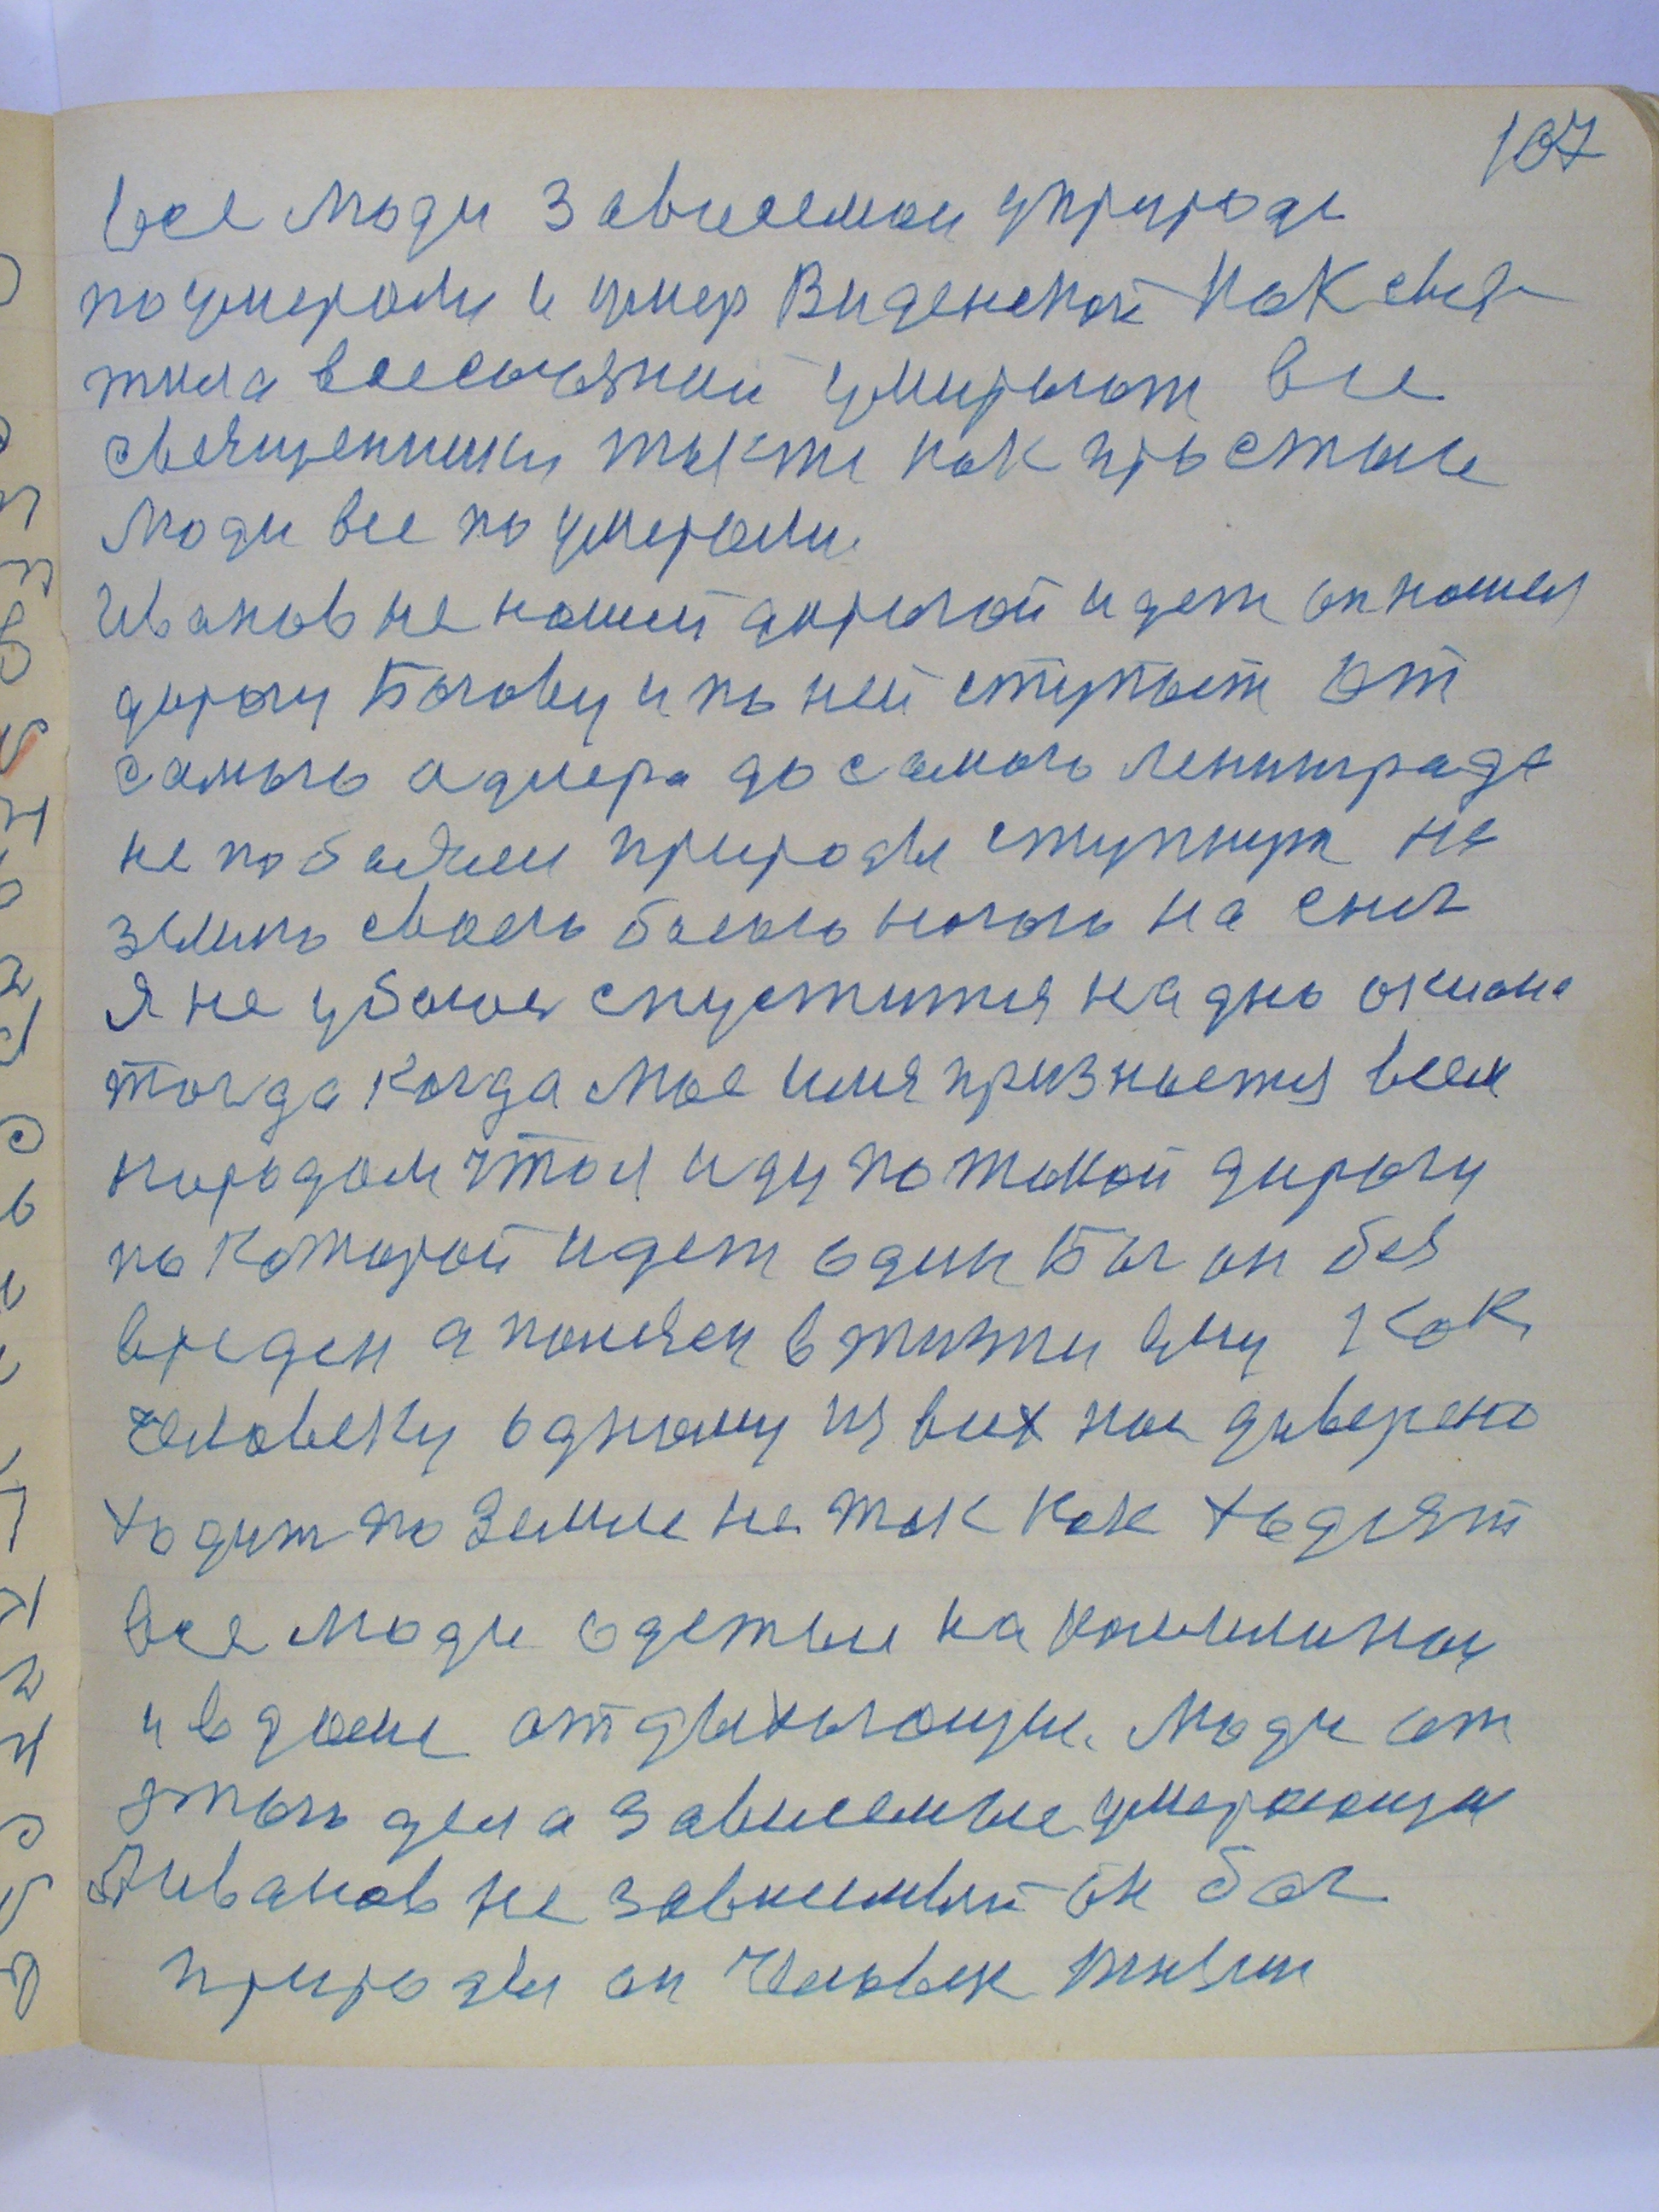 107
все люди зависемои уприроде
поумерали и умер Виденской как свя-
тила всесоюзной умирают все
священники также как простые
люди все поумерали.
Иванов не нашей дорогой идет он нашел
дорогу Богову и по ней ступает от
самого адлера до самого ленинграда
не побаялся природы ступнул не
землю своею босою ногою на снег
Я не убоюся спуститися на дно океана
тогда когда мое имя признается всем
народом что я иду по такой дорогу
по которой идет один Бог он без
вреден а полезен в жизни ему как
человеку одному из всех нас доверено
ходит по земле не так как ходят
все люди одетые накормленои
и в доме отдыхающие. Люди от
этого дела зависемые умерающие
А иванов не зависемый он бог
природы он человек жизни